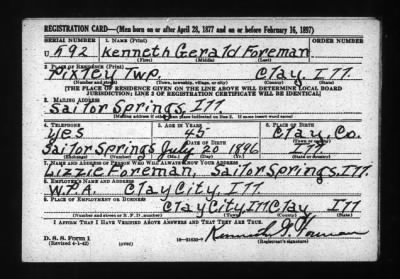 REGISTRATION CARD—(Men born on or after April 28, 1877 and on or before February 16, 1897)
SERIAL NUMBER 1. NAME (Print) ORDER NUMBER
U 592 Kenneth Gerald Foreman
(First) (Middle) (Last)
2. PLACE OF RESIDENCE (Print)
Pixley Twp. Clay, Ill
(Number and street) (Town, township, village, or city) (County) (State)
[THE PLACE OF RESIDENCE GIVEN ON THE LINE ABOVE WILL DETERMINE LOCAL BOARD
JURISDICTION; LINE 2 OF REGISTRATION CERTIFICATE WILL BE IDENTICAL]
3. MAILING ADDRESS
Sailor Springs, Ill.
[Mailing address if other than place indicated on line 2. If same insert word same]
4. TELEPHONE 5. AGE IN YEARS 6. PLACE OF BIRTH
yes 45 Clay, Co.
DATE OF BIRTH (Town or county)
Sailor Springs July 20 1896 Ill
(Exchange) (Number) (Mo.) (Day) (Yr.) (State or country)
7. NAME AND ADDRESS OF PERSON WHO WILL ALWAYS KNOW YOUR ADDRESS
Lizzie Foreman, Sailor Springs, Ill.
8. EMPLOYER'S NAME AND ADDRESS
W.P.A. Clay City, Ill
9. PLACE OF EMPLOYMENT OR BUSINESS
Clay City Ill Clay Ill
(Number and street or R. F. D. number) (Town) (County) (State)
I AFFIRM THAT I HAVE VERIFIED ABOVE ANSWERS AND THAT THEY ARE TRUE.
D. S. S. Form 1
(Revised 4-1-42) (over) Kenneth G. Foreman
(Registrant's signature)